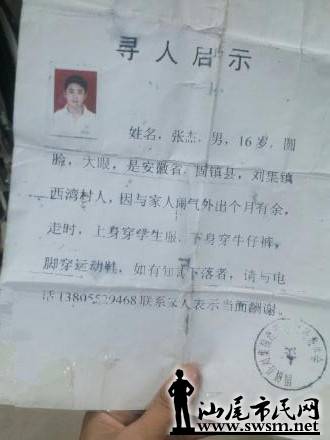 寻人启示
姓名，张杰，男，16岁，圆
脸，大眼，是安徽省，固镇县，刘集镇
西湾村人，因与家人闹气外出个月有余，
走时，上身穿学生服，下身穿牛仔裤，
脚穿运动鞋，如有知下落者，请与电
话13805529468联系家人表示当面酬谢。
汕尾市民网
www.swsm.net